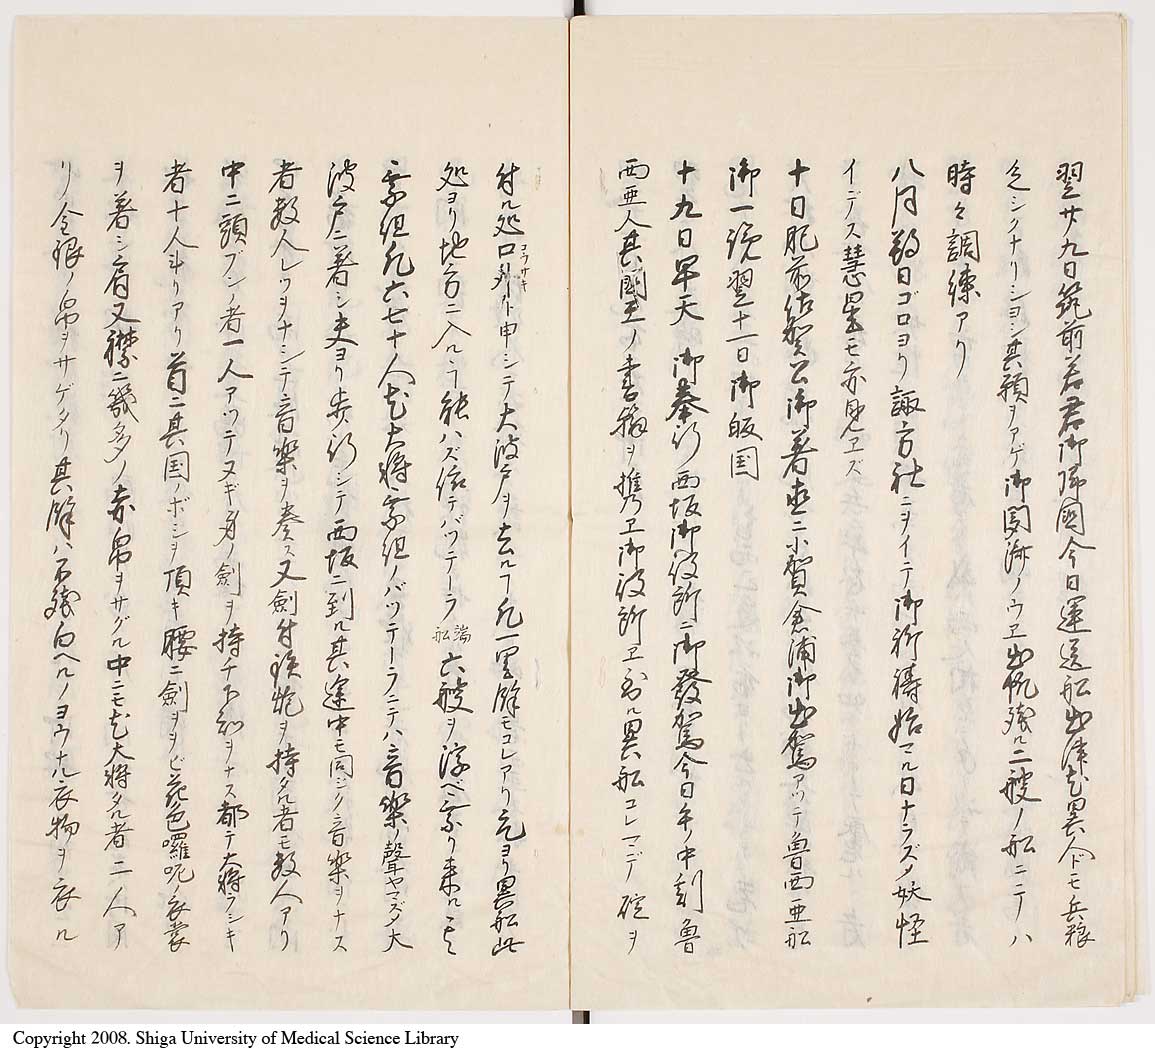 翌廿九日筑前若君御帰國今日運送船出津尤異人ドモ兵粮
乏シクナリシヨシ其願ヲアゲ御聞済ノウヱ出帆残ル二艘ノ船ニテハ
時々調練アリ
八月朔日ゴロヨリ諏方社ニヲイテ御祈祷始マル日ナラズ〆妖怪
イデス慧星モ亦見ヱズ
十日肥前佐賀公御著直ニ小賀倉浦御出駕アツテ魯西亜船
御一覧翌十一日御皈国
十九日早天 御奉行西坂御役所ニ御發駕今日午ノ中刻魯
西亜人其國王ノ書翰ヲ携ヱ御役所ヱ出ル異船コレマデ碇ヲ
付ル処口外ト申シテ大波戸ヲ去ルヿ凡一里餘モコレアリ元ヨリ異船此
コウサキ
処ヨリ地方ニ入ルヿ能ハズ依テバツテーラ 端船 六艘ヲ浮ベ乗リ来ル
乗組凡六七十人尤大将乗組ノバツテーラニテハ音樂ノ聲ヤマズ〆大
波戸ニ著シ夫ヨリ歩行シテ西坂ニ到ル其途中モ同ジク音楽ヲナス
者数人レツヲナシテ音楽ヲ奏ス又劍付鉄炮ヲ持タル者モ数人アリ
中ニ頭ブンノ者一人アツテヌギ身ノ劍ヲ持チ下知ヲナス都テ大将ラシキ
者十人斗リアリ首ニ其国ノボシヲ頂キ腰ニ劍ヲヲビ花色囉呢ノ衣裳
ヲ著シ肩又襟ニ幾多ノ赤帛ヲサグル中ニモ尤大将タル者二人ア
リ金銀ノ帛ヲサゲタリ其餘ハ不残白ヘルノヨウナル衣物ヲ衣ル
Copyright 2008. Shiga University of Medical Science Library